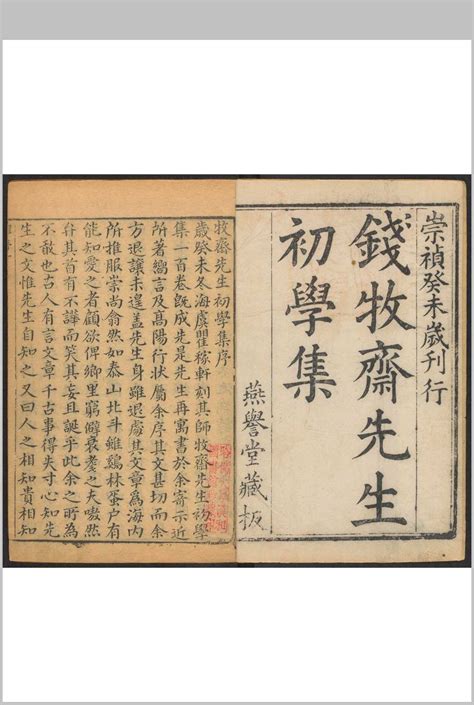 崇禎癸未歲刊行
錢牧齋先生
初學集
燕譽堂藏板
牧齋先生初學集序
歲癸未冬海虞瞿稼軒刻其師牧齋先生初學
集一百卷旣成先是先生再寓書於余寄示近
所著嚮言及高陽行狀屬余序其文甚切而余
方退讓未遑蓋先生身雖退處其文章為海内
所推服崇尚翕然如泰山北斗雖鷄林蜑户有
能知愛之者顧欲俾鄉里窮僻耄之夫嗷然
弁其首而前不譁而笑其妄且誕乎此余之所為
不敢也古人有言文章千古事得失寸心知先
生之文惟先生自知之又曰人之相知貴相知